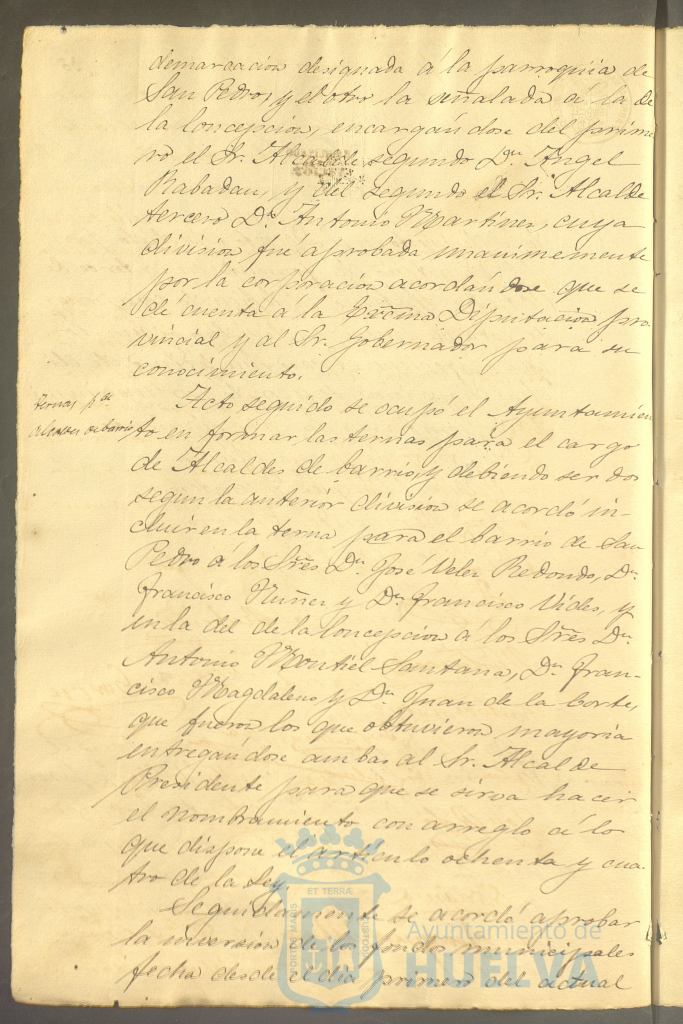 demarcacion designada á la parroquia de
San Pedro, y el otro la señalada á la de
la Concepcion, encargandose del prime
ro el Sr. Alcalde segundo Dn. Angel
Rabadan, y del segundo el Sr. Alcalde
tercero Dn. Antonio Martinez, cuya
division fué aprobada unanimemente
por la corporacion acordandose que se
dé cuenta á la Excma Diputacion pro-
vincial y al Sr. Gobernador para su
conocimiento.
Ternas pa de
Alcaldes de barrio
Acto seguido se ocupó el Ayuntamien
to en formar las ternas para el cargo
de Alcaldes de barrio, y debiendo ser dos
segun la anterior division se acordó in-
cluir en la terna para el barrio de San
Pedro á los Sres Dn. José Velez Redondo, Dn.
Francisco Nuñez y Dn. Francisco Vides, y
en la del de la Concepcion á los Sres Dn.
Antonio Montiel Santana, Dn. Fran-
cisco Magdaleno y Dn. Juan de la Corte,
que fueron los que obtuvieron mayoria
entregandose ambas al Sr. Alcalde
Presidente para que se sirva hacer
el nombramiento con arreglo á lo
que dispone el artículo ochenta y cua-
tro de la Ley.
Seguidamente se acordó aprobar
la inversion de los fondos municipales
fecha desde el dia primero del actual
PORTUS MARIS
ET TERRÆ
CUSTODIA
Ayuntamiento de
HUELVA